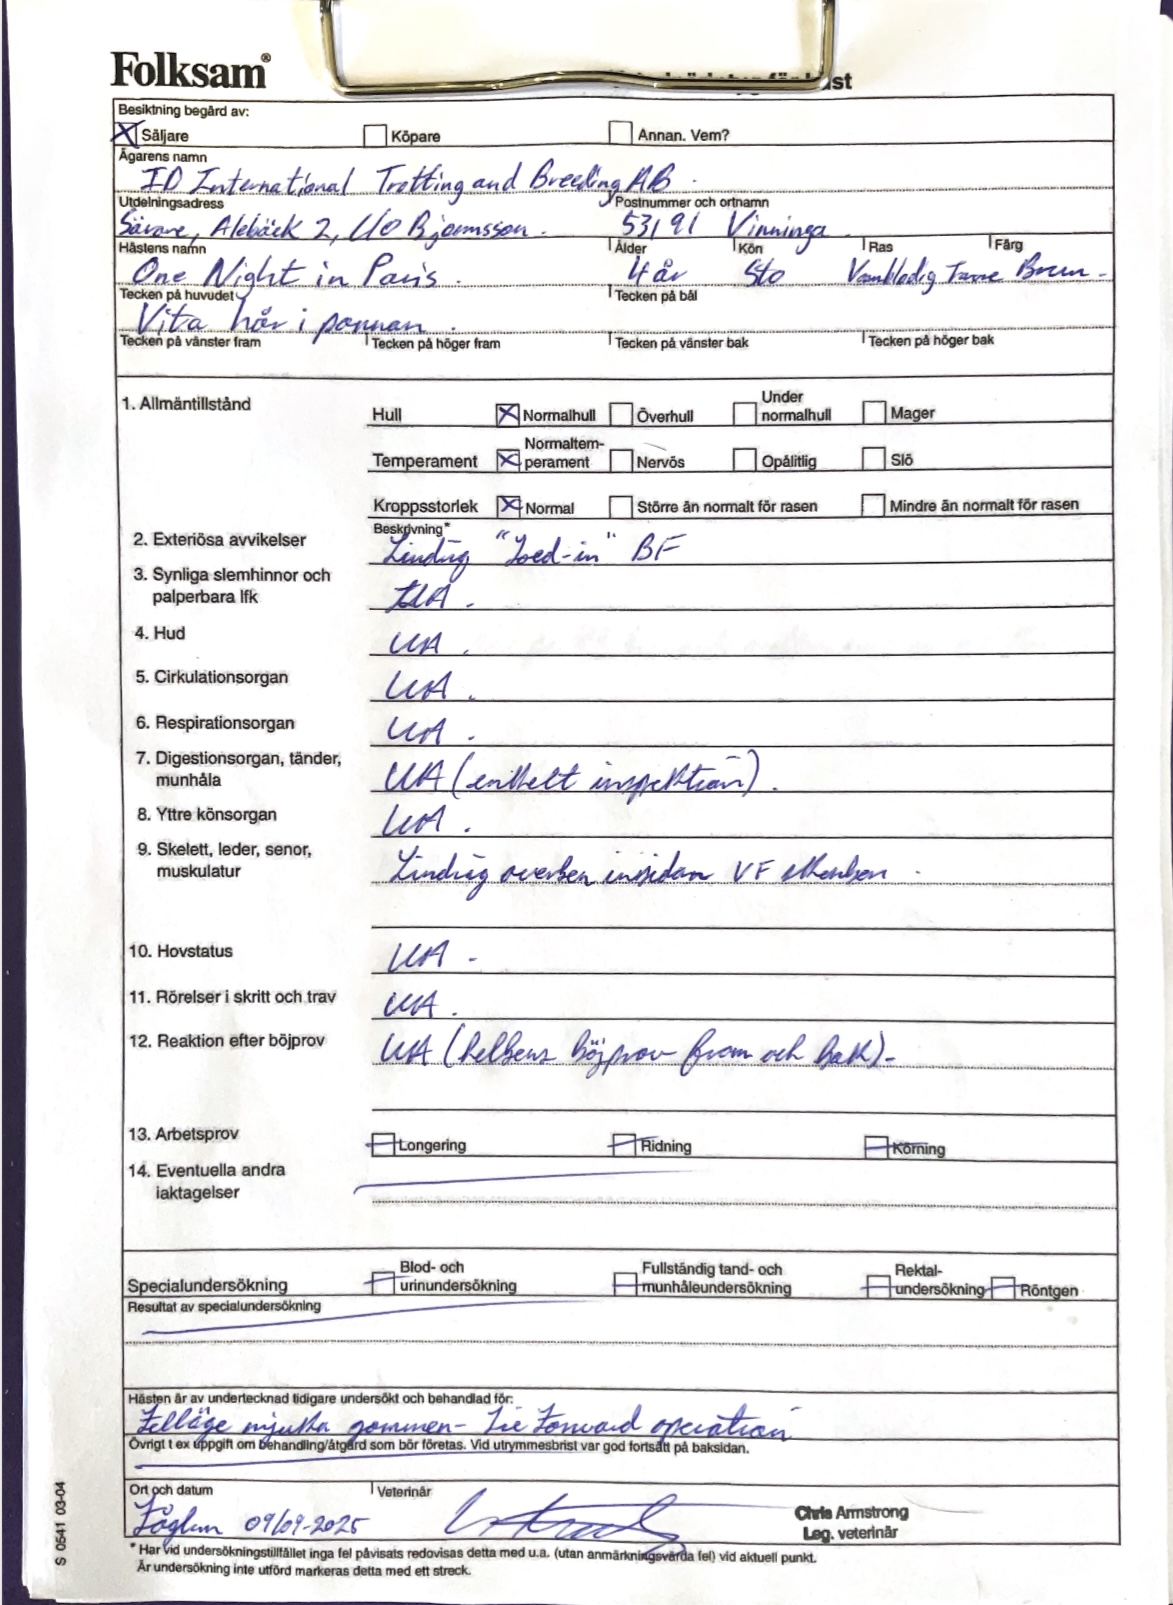 Folksam®
Besiktning begärd av:
Säljare Köpare Annan. Vem?
Ägarens namn
ID International Trotting and Breeding AB
Utdelningsadress Postnummer och ortnamn
Alebäck 2, C/O Bjornsson 53191 Vinninga
Hästens namn Ålder Kön Ras Färg
One Night in Paris 4 år Sto Varmblodig Brun
Tecken på huvudet Tecken på bål
Vita hår i pannan
Tecken på vänster fram Tecken på höger fram Tecken på vänster bak Tecken på höger bak
1. Allmäntillstånd
Hull Normalhull Överhull Under normalhull Mager
Temperament Normaltem-perament Nervös Opålitlig Slö
Kroppsstorlek Normal Större än normalt för rasen Mindre än normalt för rasen
Beskrivning*
2. Exteriösa avvikelser Lindrig "Toed-in" BF
3. Synliga slemhinnor och
palperbara lfk UA.
4. Hud UA.
5. Cirkulationsorgan UA.
6. Respirationsorgan UA.
7. Digestionsorgan, tänder,
munhåla UA (enkelt inspektion).
8. Yttre könsorgan UA.
9. Skelett, leder, senor,
muskulatur Lindrig överben insidan VF skenben
10. Hovstatus UA -
11. Rörelser i skritt och trav UA.
12. Reaktion efter böjprov UA (helbens böjprov fram och bak)-
13. Arbetsprov Longering Ridning Körning
14. Eventuella andra
iaktagelser
Specialundersökning Blod- och urinundersökning Fullständig tand- och munhåleundersökning Rektal-undersökning Röntgen
Resultat av specialundersökning
Hästen är av undertecknad tidigare undersökt och behandlad för:
Felläge mjuka gommen - Tie Forward operation
Övrigt t ex uppgift om behandling/åtgärd som bör företas. Vid utrymmesbrist var god fortsätt på baksidan.
Ort och datum Veterinär
09/09-2025
Chris Armstrong
Leg. veterinär
* Har vid undersökningstillfället inga fel påvisats redovisas detta med u.a. (utan anmärkningsvärda fel) vid aktuell punkt.
Är undersökning inte utförd markeras detta med ett streck.
S 0541 03-04